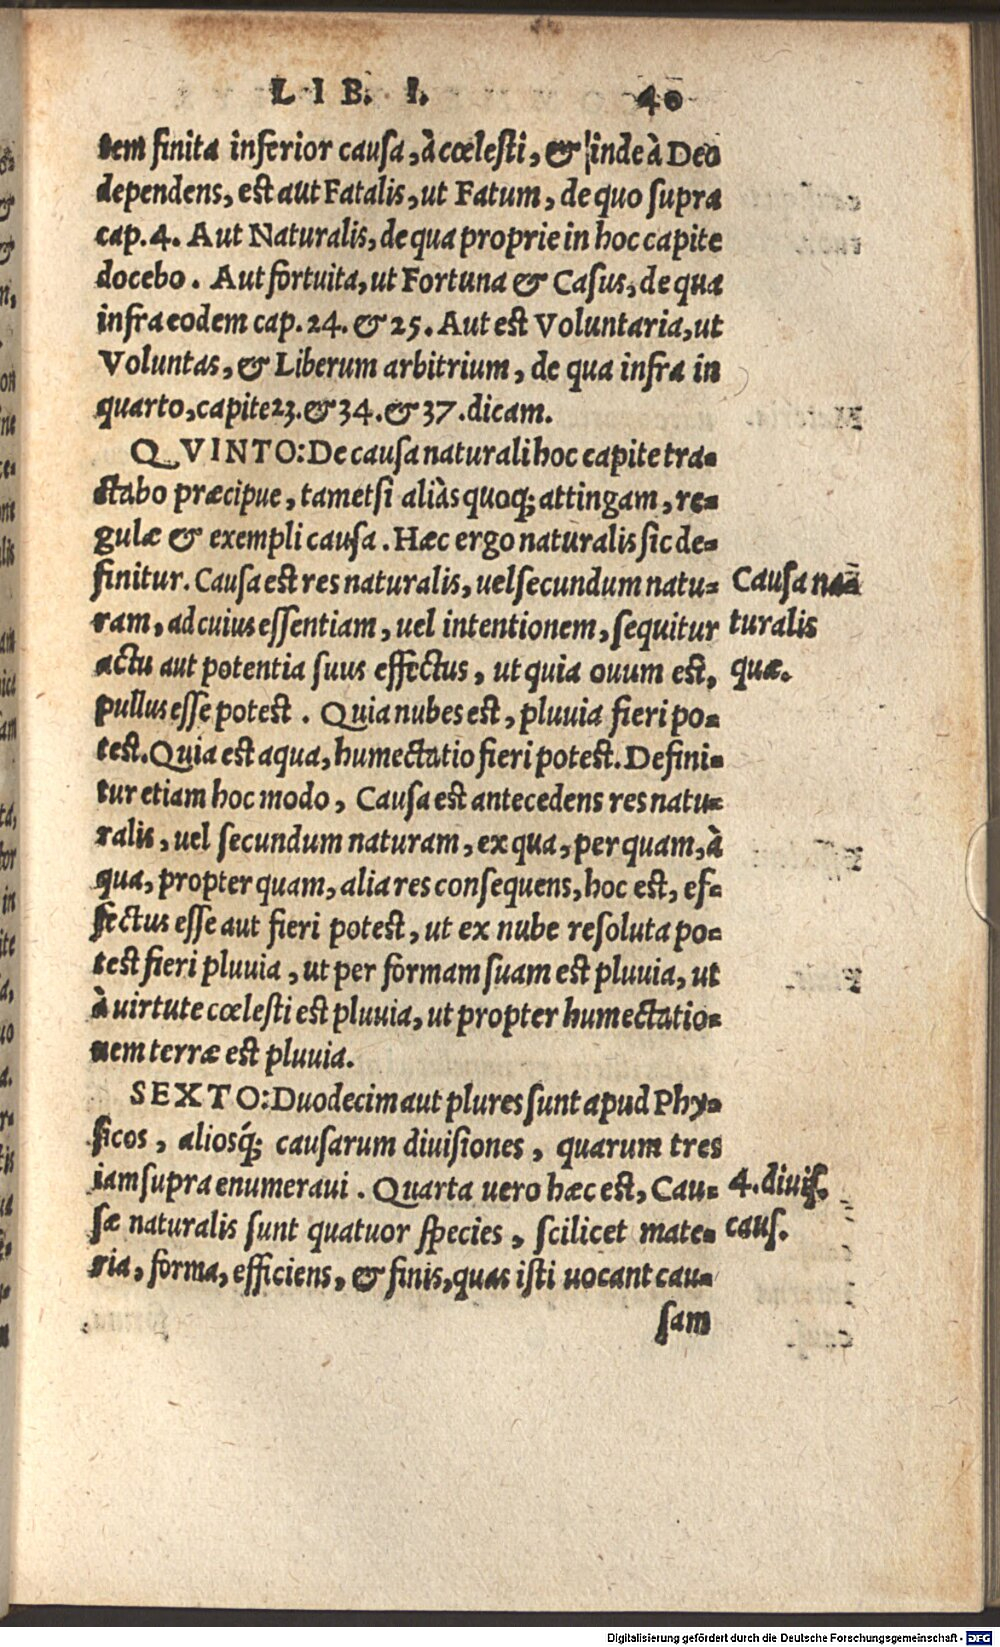 LIB. I. 40
tem finita inferior causa, à cœlesti, & inde à Deo
dependens, est aut Fatalis, ut Fatum, de quo supra
cap. 4. Aut Naturalis, de qua proprie in hoc capite
docebo. Aut fortuita, ut Fortuna & Casus, de qua
infra eodem cap. 24. & 25. Aut est Voluntaria, ut
Voluntas, & Liberum arbitrium, de qua infra in
quarto, capite 23. & 34. & 37. dicam.
QVINTO: De causa naturali hoc capite tra-
ctabo præcipue, tametsi aliàs quoq; attingam, re-
gulæ & exempli causa. Hæc ergo naturalis sic de-
finitur. Causa est res naturalis, uel secundum natu-
ram, ad cuius essentiam, uel intentionem, sequitur
actu aut potentia suus effectus, ut quia ouum est,
pullus esse potest. Quia nubes est, pluuia fieri po-
test. Quia est aqua, humectatio fieri potest. Defini-
tur etiam hoc modo, Causa est antecedens res natu-
ralis, uel secundum naturam, ex qua, per quam, à
qua, propter quam, alia res consequens, hoc est, ef-
fectus esse aut fieri potest, ut ex nube resoluta po-
test fieri pluuia, ut per formam suam est pluuia, ut
à uirtute cœlesti est pluuia, ut propter humectatio-
nem terræ est pluuia.
SEXTO: Duodecim aut plures sunt apud Phy-
sicos, aliosq́; causarum diuisiones, quarum tres
iam supra enumeraui. Quarta uero hæc est, Cau-
sæ naturalis sunt quatuor species, scilicet mate-
ria, forma, efficiens, & finis, quas isti uocant cau-
sam
Causa na-
turalis
quæ.
4. diuis.
caus.
Digitalisierung gefördert durch die Deutsche Forschungsgemeinschaft - DFG